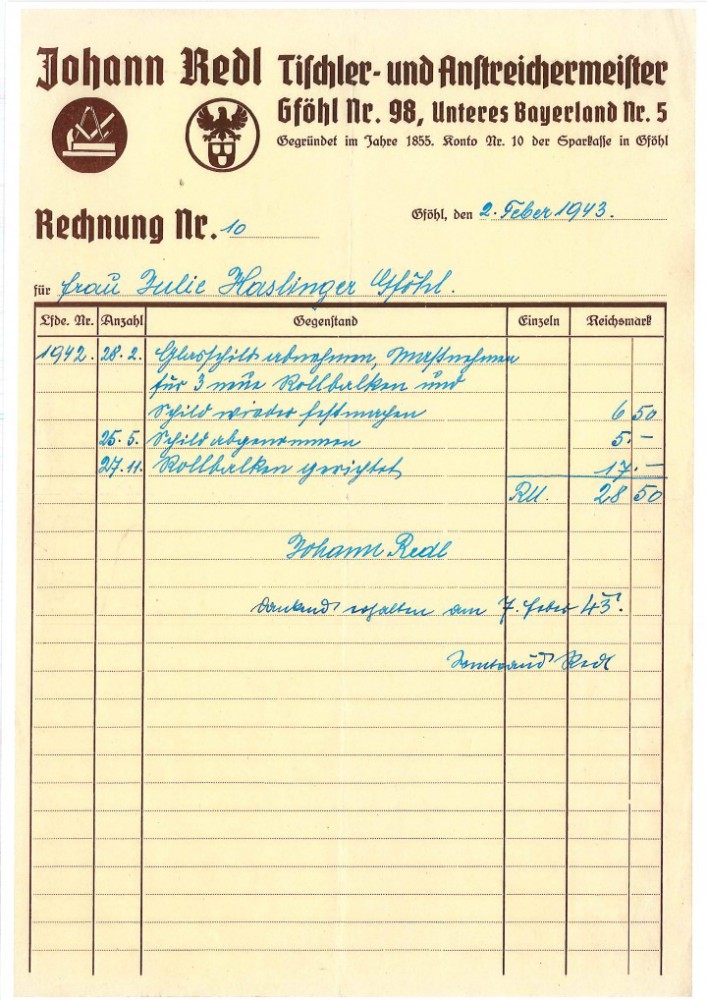 Johann Redl Tischler- und Anstreichermeister
Gföhl Nr. 98, Unteres Bayerland Nr. 5
Gegründet im Jahre 1855. Konto Nr. 10 der Sparkasse in Gföhl
Gföhl, den 2. Feber 1943.
Rechnung Nr. 10
für Frau Julie Haslinger Gföhl.
Lfde. Nr. Anzahl Gegenstand Einzeln Reichsmark
1942. 28. 2. Glasschild abnehmen, Maßnehmen
für 3 neue Rollbalken und
Schild wieder festmachen 6 50
25. 5. Schild abgenommen 5. –
27. 11. Rollbalken gerichtet 17. –
RM. 28 50
Johann Redl
Dankend erhalten am 7. Feber 43.
Redl